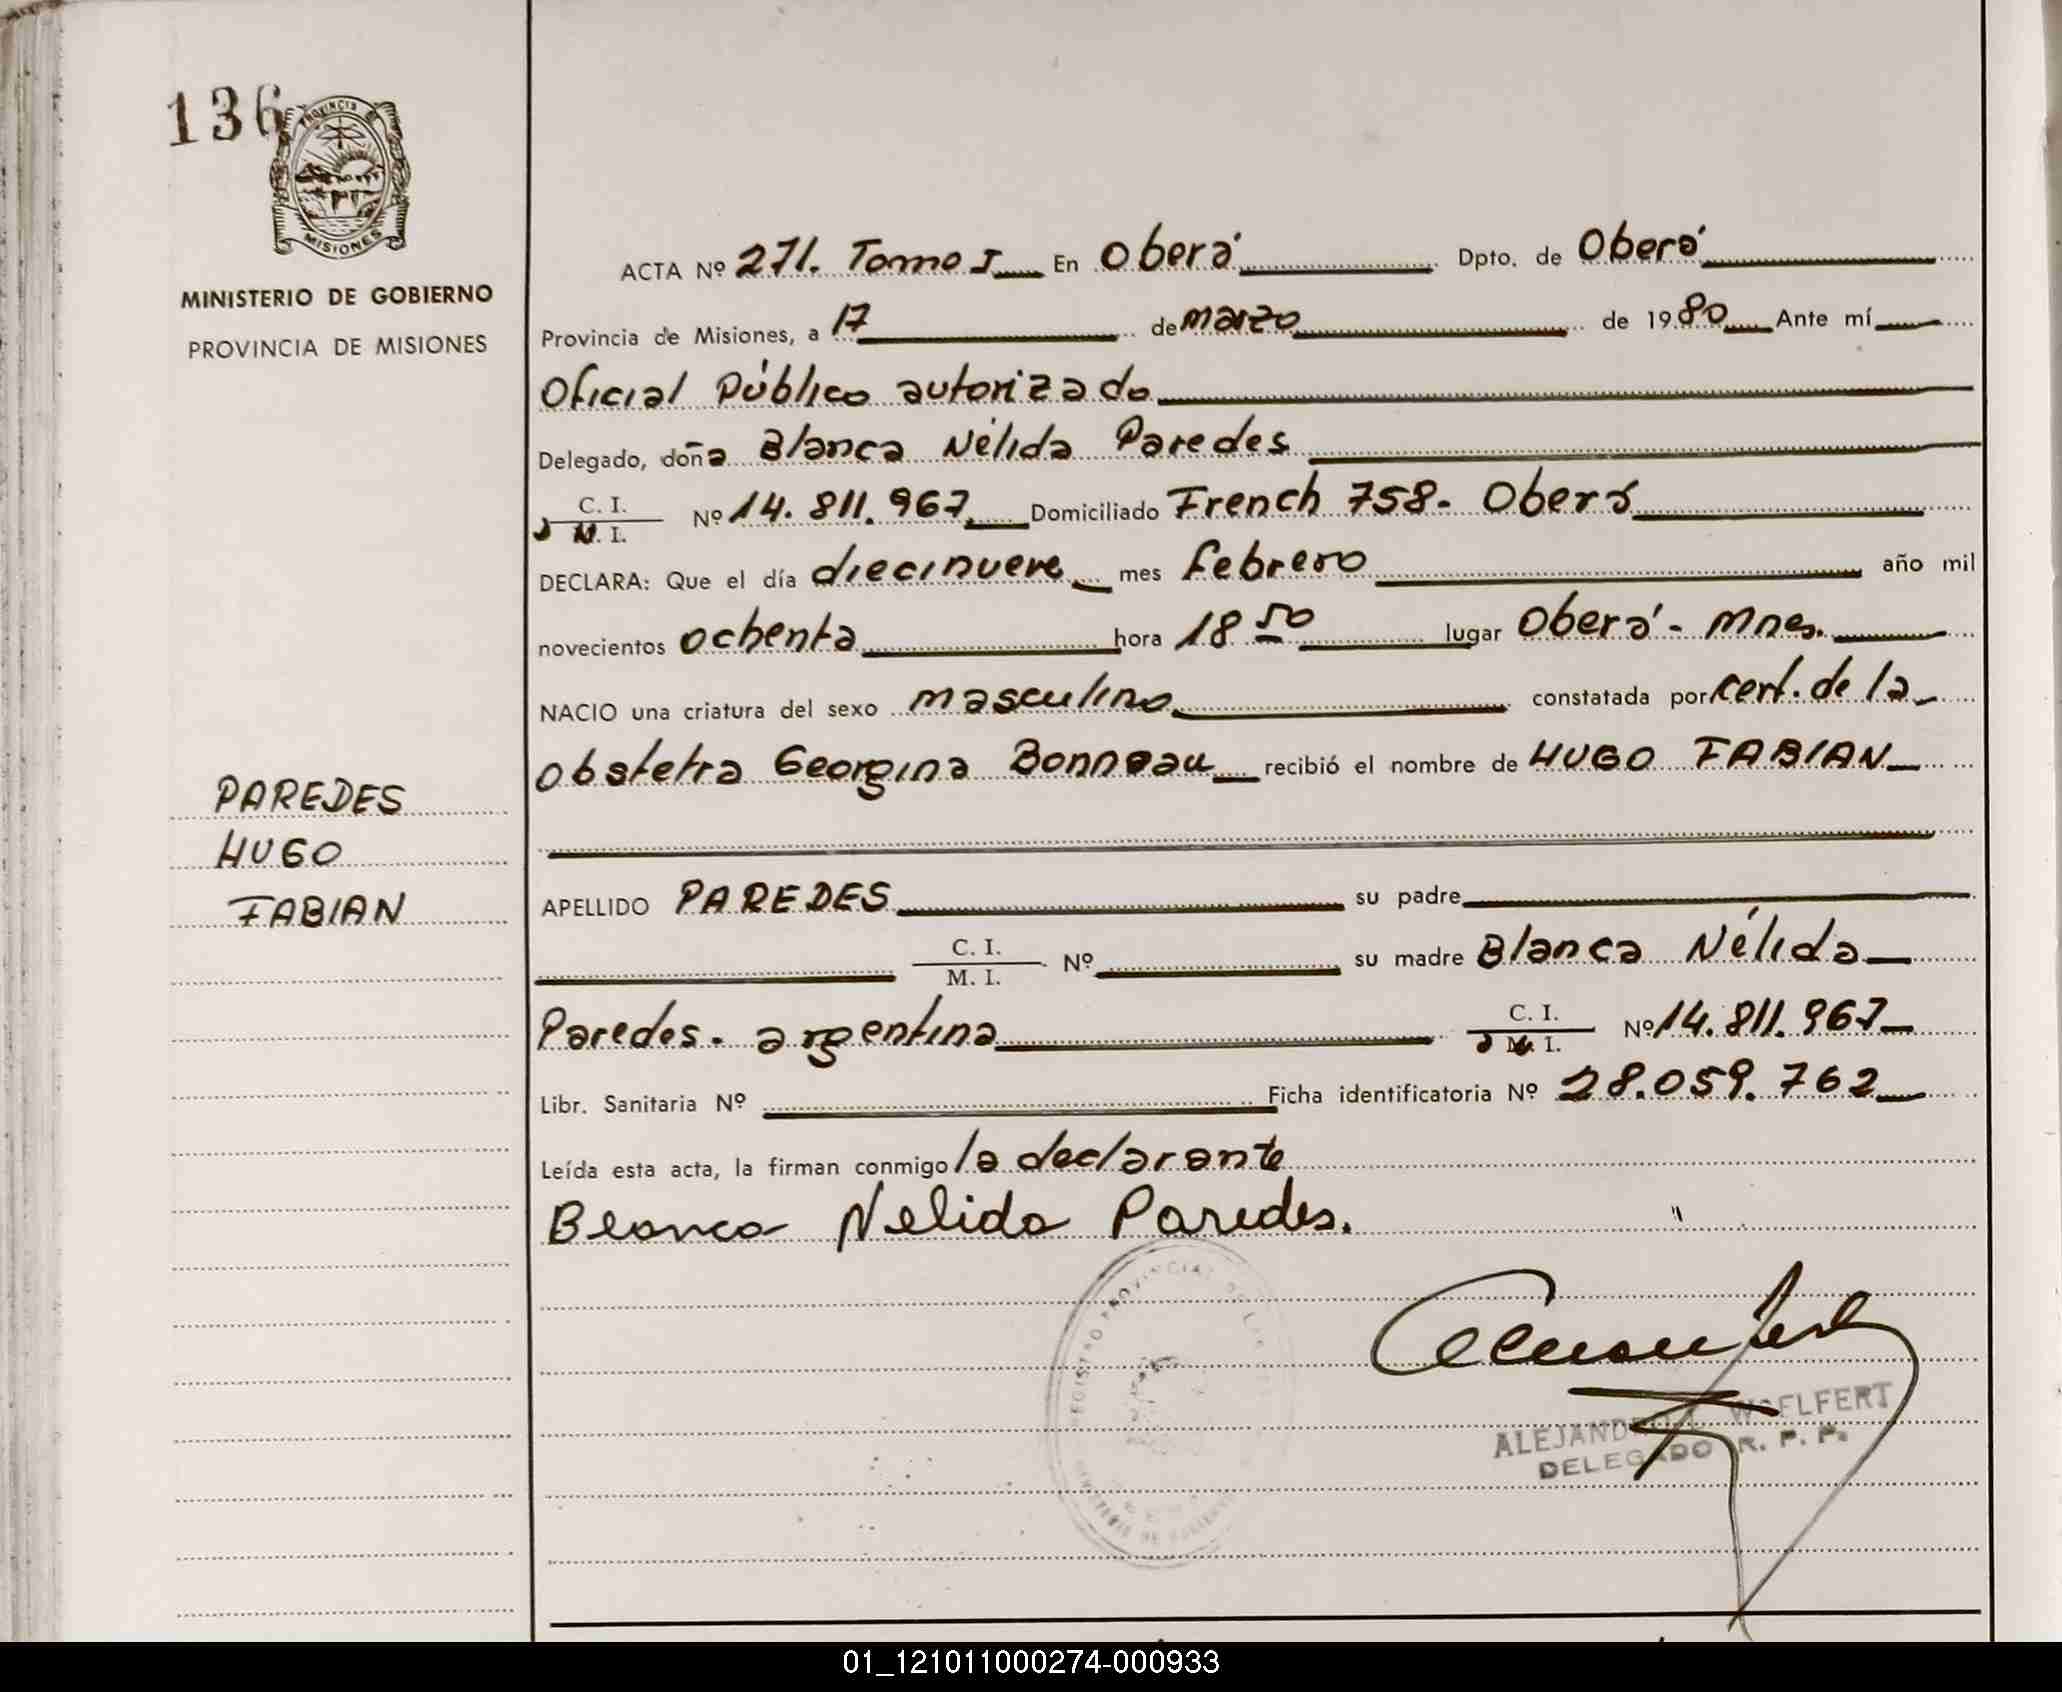 136
PROVINCIA DE
MISIONES
MINISTERIO DE GOBIERNO
PROVINCIA DE MISIONES
PAREDES
HUGO
FABIAN
ACTA Nº 271. Tomo I En Oberá Dpto. de Oberá
Provincia de Misiones, a 17 de marzo de 1980 Ante mí
Oficial Público autorizado
Delegado, doña Blanca Nélida Paredes
C. I.
M. I. Nº 14.811.967 Domiciliado French 758- Oberá
DECLARA: Que el día diecinueve mes febrero año mil
novecientos ochenta hora 18 50 lugar Oberá - Mnes.
NACIO una criatura del sexo masculino constatada por cert. de la
obstetra Georgina Bonneau recibió el nombre de HUGO FABIAN
APELLIDO PAREDES su padre
C. I.
M. I. Nº su madre Blanca Nélida
Paredes. argentina C. I.
M. I. Nº 14.811.967
Libr. Sanitaria Nº Ficha identificatoria Nº 28.059.762
Leída esta acta, la firman conmigo la declarante
Blanca Nelida Paredes.
REGISTRO PROVINCIAL DE LAS
MINISTERIO DE GOBIERNO
WOELFERT
DELEGADO R. P. P.
01_121011000274-000933